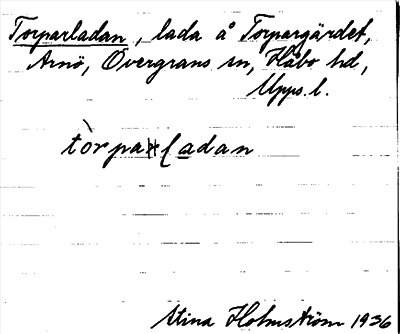 Torparladan, lada å Torpargärdet,
Arnö, Övergrans sn, Håbo hd,
Upps. l.
tòrpaladan
Stina Holmström 1936